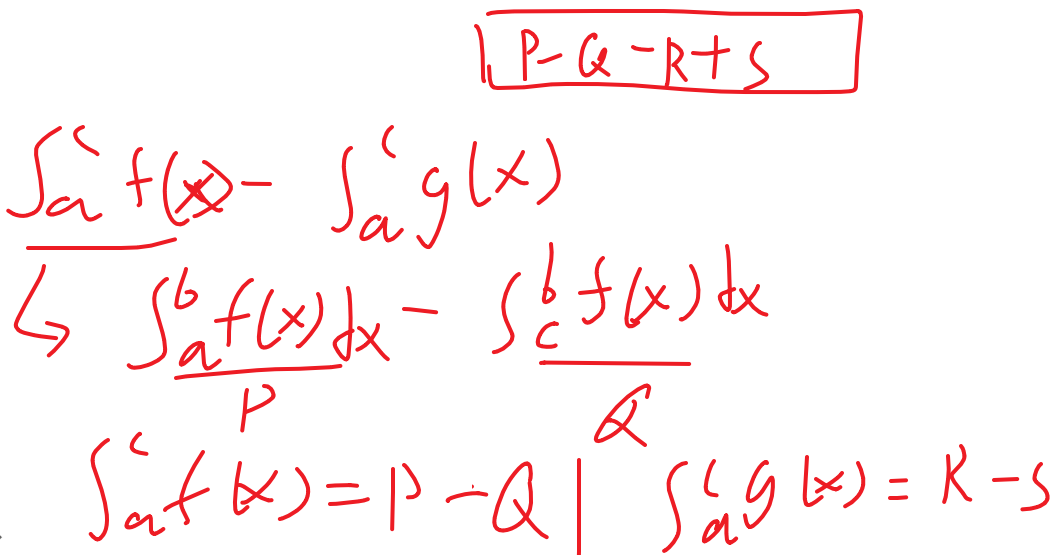 P - Q - R + S
∫_a^c f(x) - ∫_a^c g(x)
↳ ∫_a^b f(x) dx - ∫_c^b f(x) dx
P Q
∫_a^c f(x) = P - Q | ∫_a^c g(x) = R - S